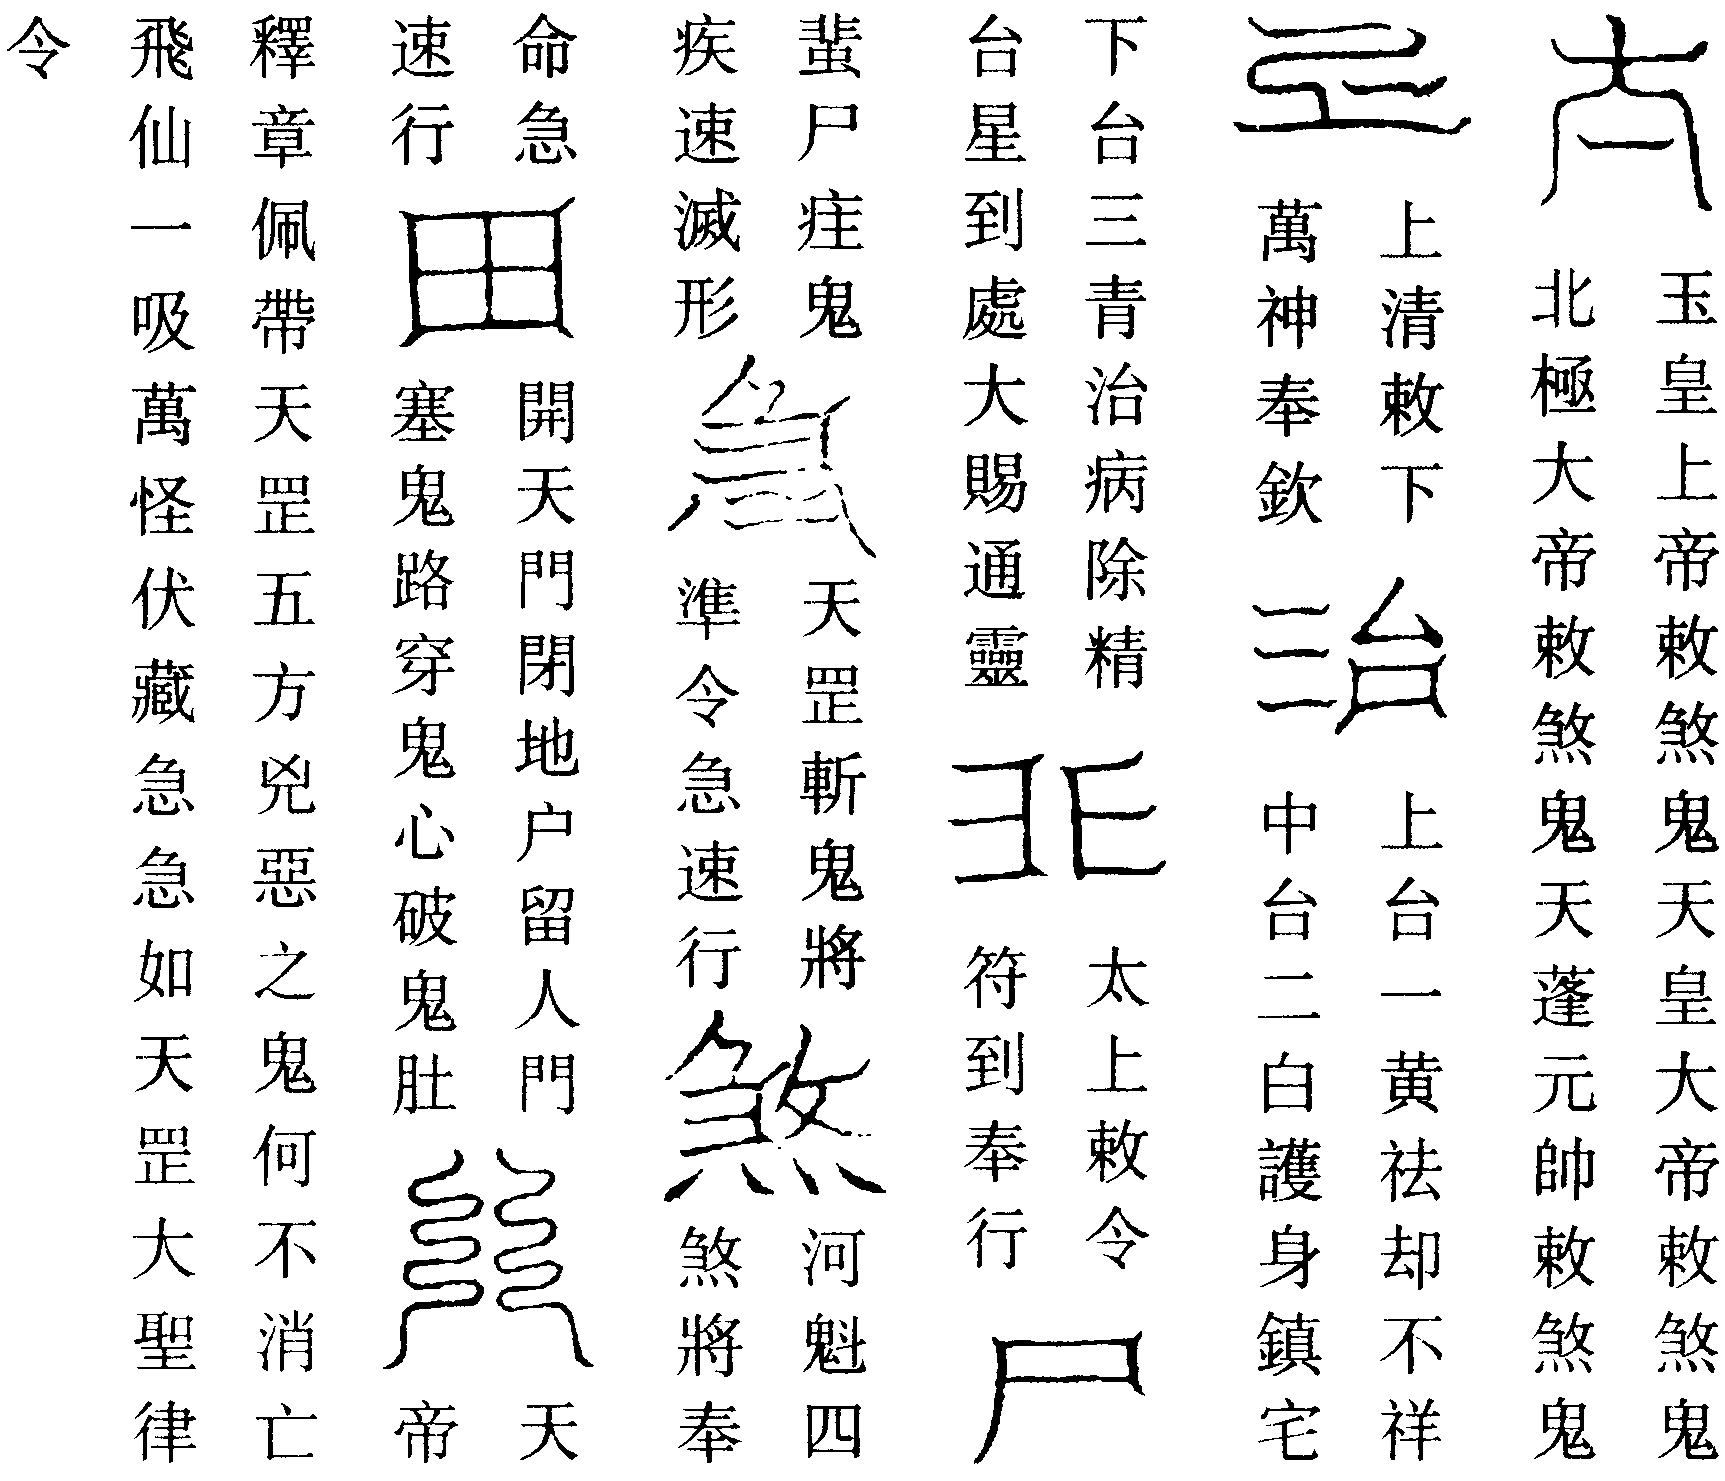 玉皇上帝敕煞鬼天皇大帝敕煞鬼
北極大帝敕煞鬼天蓬元帥敕煞鬼
上清敕下
萬神奉欽
治
上台一黄祛却不祥
中台二白護身鎮宅
下台三青治病除精
台星到處大賜通靈
北
太上敕令
符到奉行
尸
蜚尸疰鬼
疾速滅形
天罡斬鬼將
準令急速行
煞
河魁四
煞將奉
命急
速行
田
開天門閉地户留人門
塞鬼路穿鬼心破鬼肚
天
帝
釋章佩帶天罡五方兇惡之鬼何不消亡
飛仙一吸萬怪伏藏急急如天罡大聖律
令